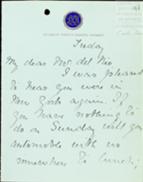 Friday
My dear Mr. del Rio
I was pleased
to hear you were in
Mrs again. If
you have nothing to
do on Sunday will you
automobile with us
somewhere to lunch?